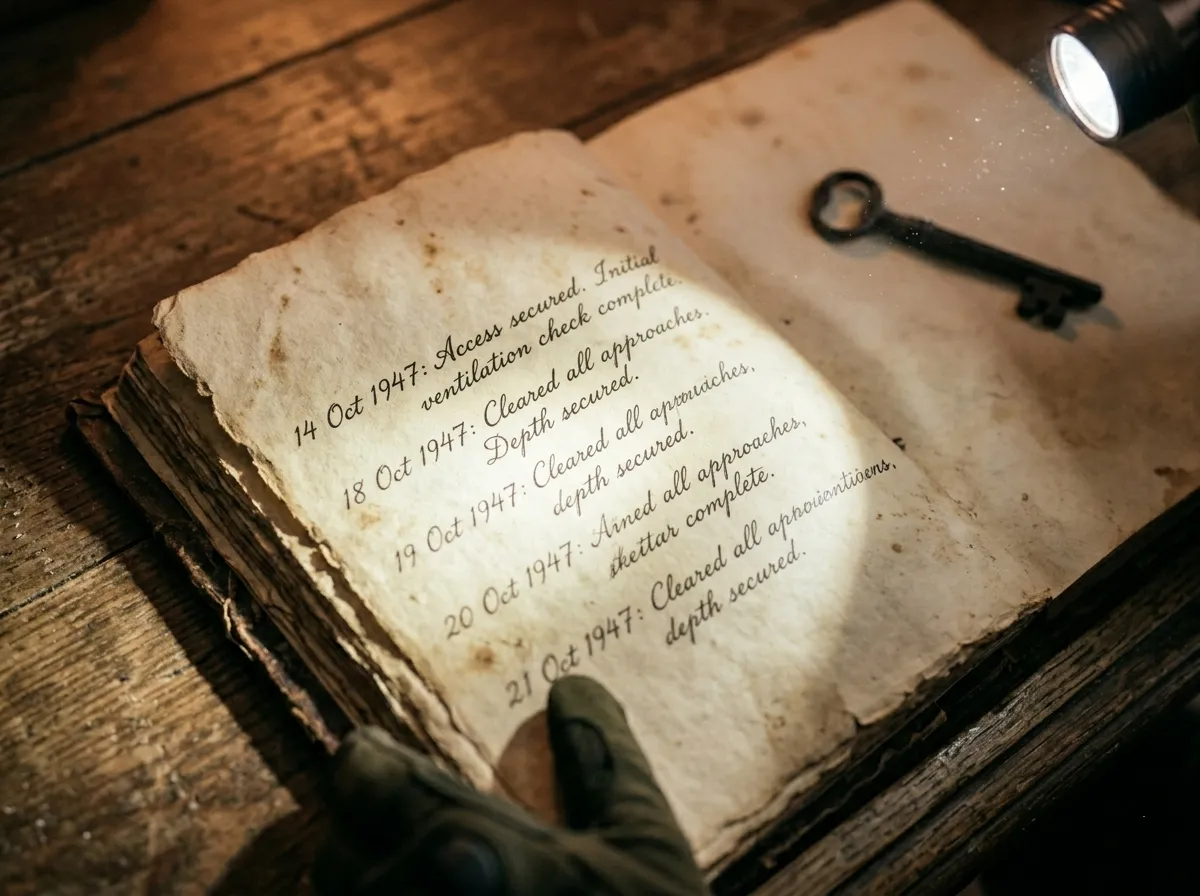 14 Oct 1947: Access secured. Initial
ventilation check complete.
18 Oct 1947: Cleared all approaches.
Depth secured.
19 Oct 1947: Cleared all
depth secured.
20 Oct 1947: Ained all approaches,
skettar complete.
21 Oct 1947: Cleared all
depth secured.